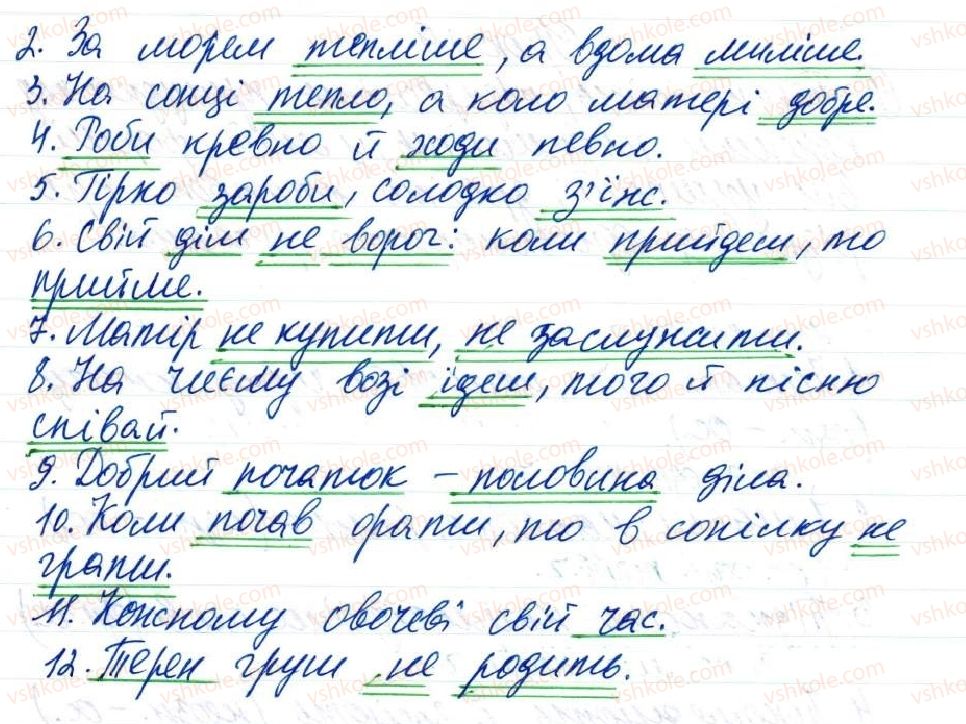 2. За морем тепліше, а вдома миліше.
3. На сонці тепло, а коло матері добре.
4. Роби кревно й ходи певно.
5. Гірко зароби, солодко з'їж.
6. Свій дім не ворог: коли прийдеш, то
прийме.
7. Матір не купити, не заслужити.
8. На чиєму возі їдеш, того й пісню
співай.
9. Добрий початок – половина діла.
10. Коли почав орати, то в сопілку не
грати.
11. Кожному овочеві свій час.
12. Терен груш не родить.